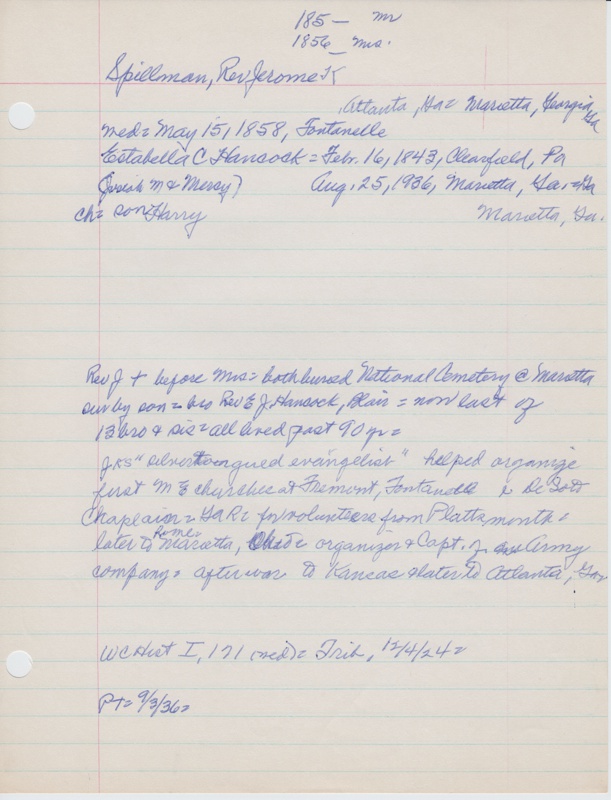 185— Mr
1856— Mrs.
Spillman, Rev Jerome K
Atlanta, Ga = Marietta, Georgia, Ga
med = May 15, 1858, Fontanelle
Estabella C Hancock = Febr. 16, 1843, Clearfield, Pa
(Josiah M & Mercy) Aug. 25, 1936, Marietta, Ga. = Ga
ch = son Harry Marietta, Ga.
Rev J + before Mrs = both buried National Cemetery @ Marietta
sur by son = bro Rev E J. Hancock, Blair = now last of
13 bro & sis = all lived past 90 yr =
JKS "silver tongued evangelist" helped organize
first M E churches at Fremont, Fontanelle & De Soto
Chaplain = GAR = for volunteers from Plattsmouth =
later to Rome Marietta, organizer & Capt. of Army
company = after war to Kansas & later to Atlanta, Ga.
WC Hist I, 121 (med) = Trib, 12/4/24 =
PT = 9/3/36 =